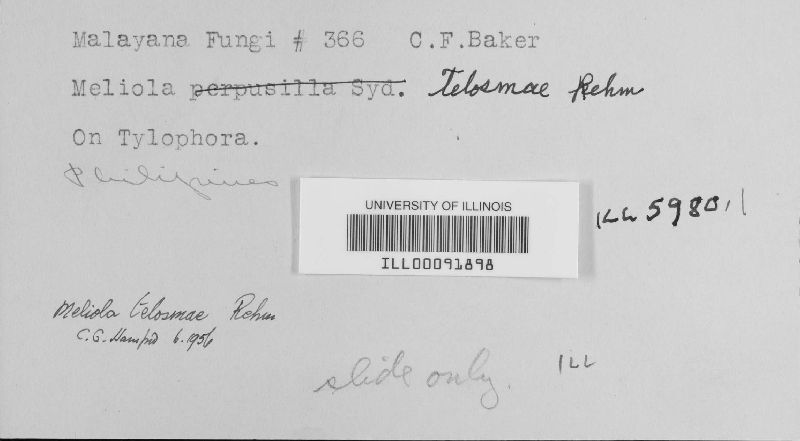 Malayana Fungi # 366 C.F.Baker
Meliola perpusilla Syd. Telosmae Rehm
On Tylophora.
Philipines
UNIVERSITY OF ILLINOIS
ILL00091898
ILL 5980,1
Meliola telosmae Rehm
C.G. 6.1956
slide only.
ILL